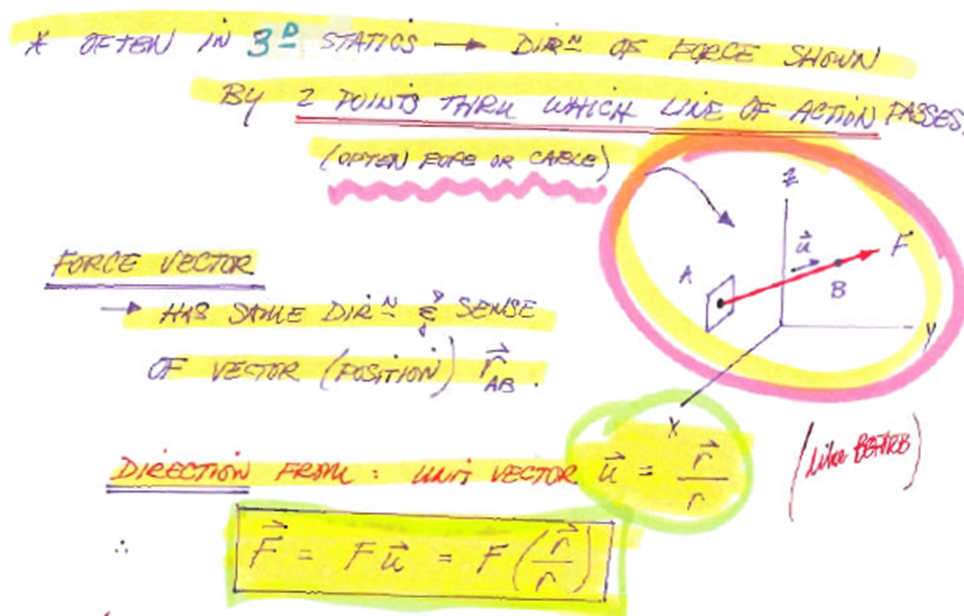 * OFTEN IN 3D STATICS → DIRN OF FORCE SHOWN
BY 2 POINTS THRU WHICH LINE OF ACTION PASSES.
(OFTEN ROPE OR CABLE)
z
u⃗
F
A
B
y
x
FORCE VECTOR
→ HAS SAME DIRN & SENSE
OF VECTOR (POSITION) r⃗AB.
DIRECTION FROM: UNIT VECTOR u⃗ = r⃗/r
(like BEFORE)
∴ F⃗ = Fu⃗ = F(r⃗/r)